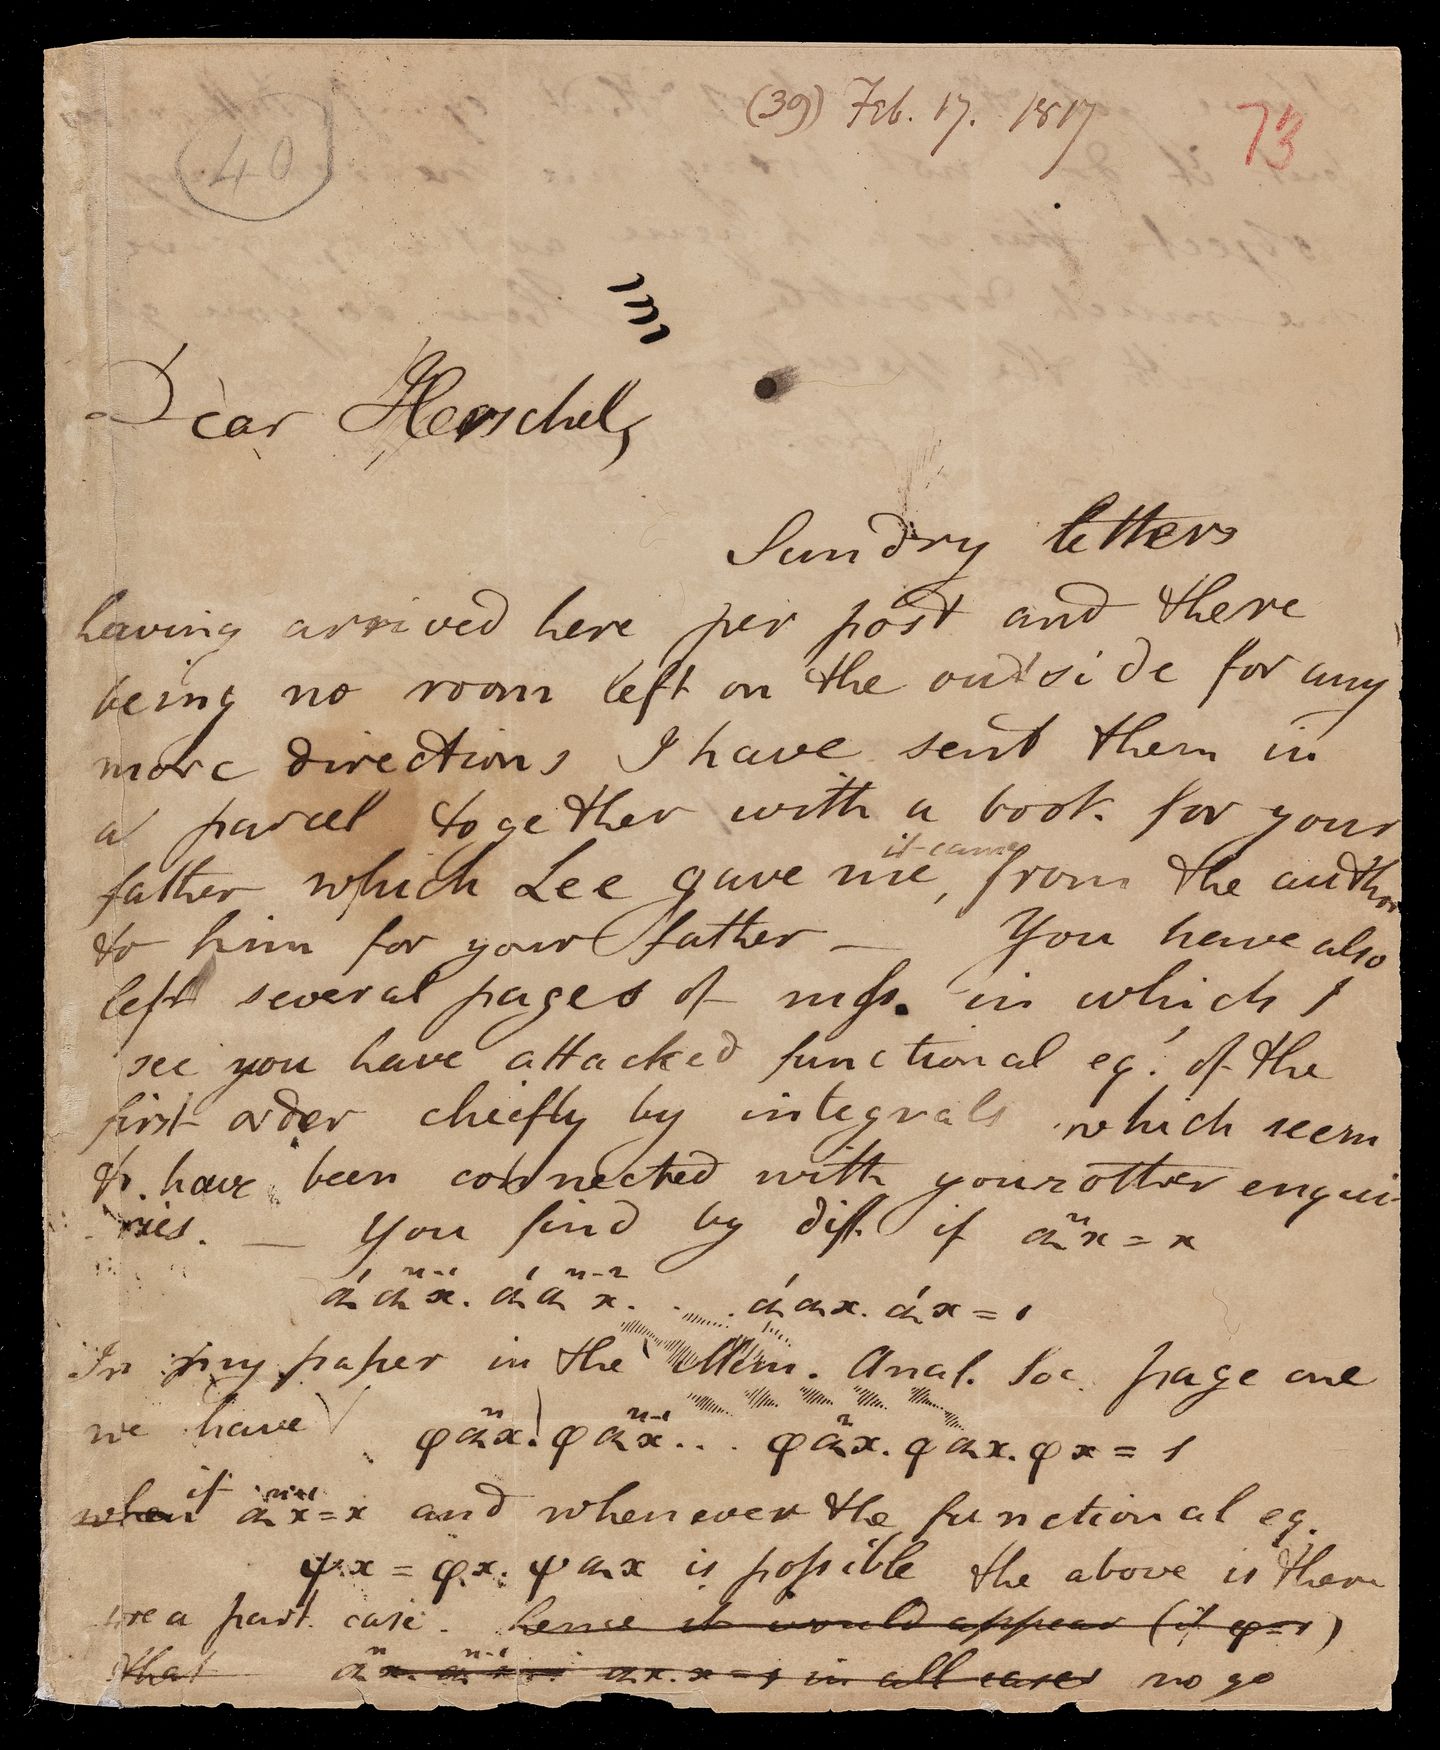 (39) Feb. 17. 1817
73
40
Dear Herschel,
Sundry letters
having arrived here per post and there
being no room left on the outside for any
more directions I have sent them in
a parcel together with a book for your
it came
father which Lee gave me, from the author
to him for your father — You have also
left several pages of mss. in which I
see you have attacked functional eq.ˢ of the
first order chiefly by integrals which seem
to have been connected with your other enqui-
ries. — You find by diff. if αⁿx = x
άαⁿ⁻¹x. άαⁿ⁻²x. . ..... άαx. άx = 1
In my paper in the Mem. Anal. Soc. page one
we have φαⁿx. φαⁿ⁻¹x... φα²x. φαx. φx = 1
when if αⁿ⁺¹x = x and whenever the functional eq.
ψx = φx. ψαx is possible the above is there
fore a part. case. hence it would appear (if φ=1)
that αⁿx. αⁿ⁻¹x ... αx. x = 1 in all cases no go